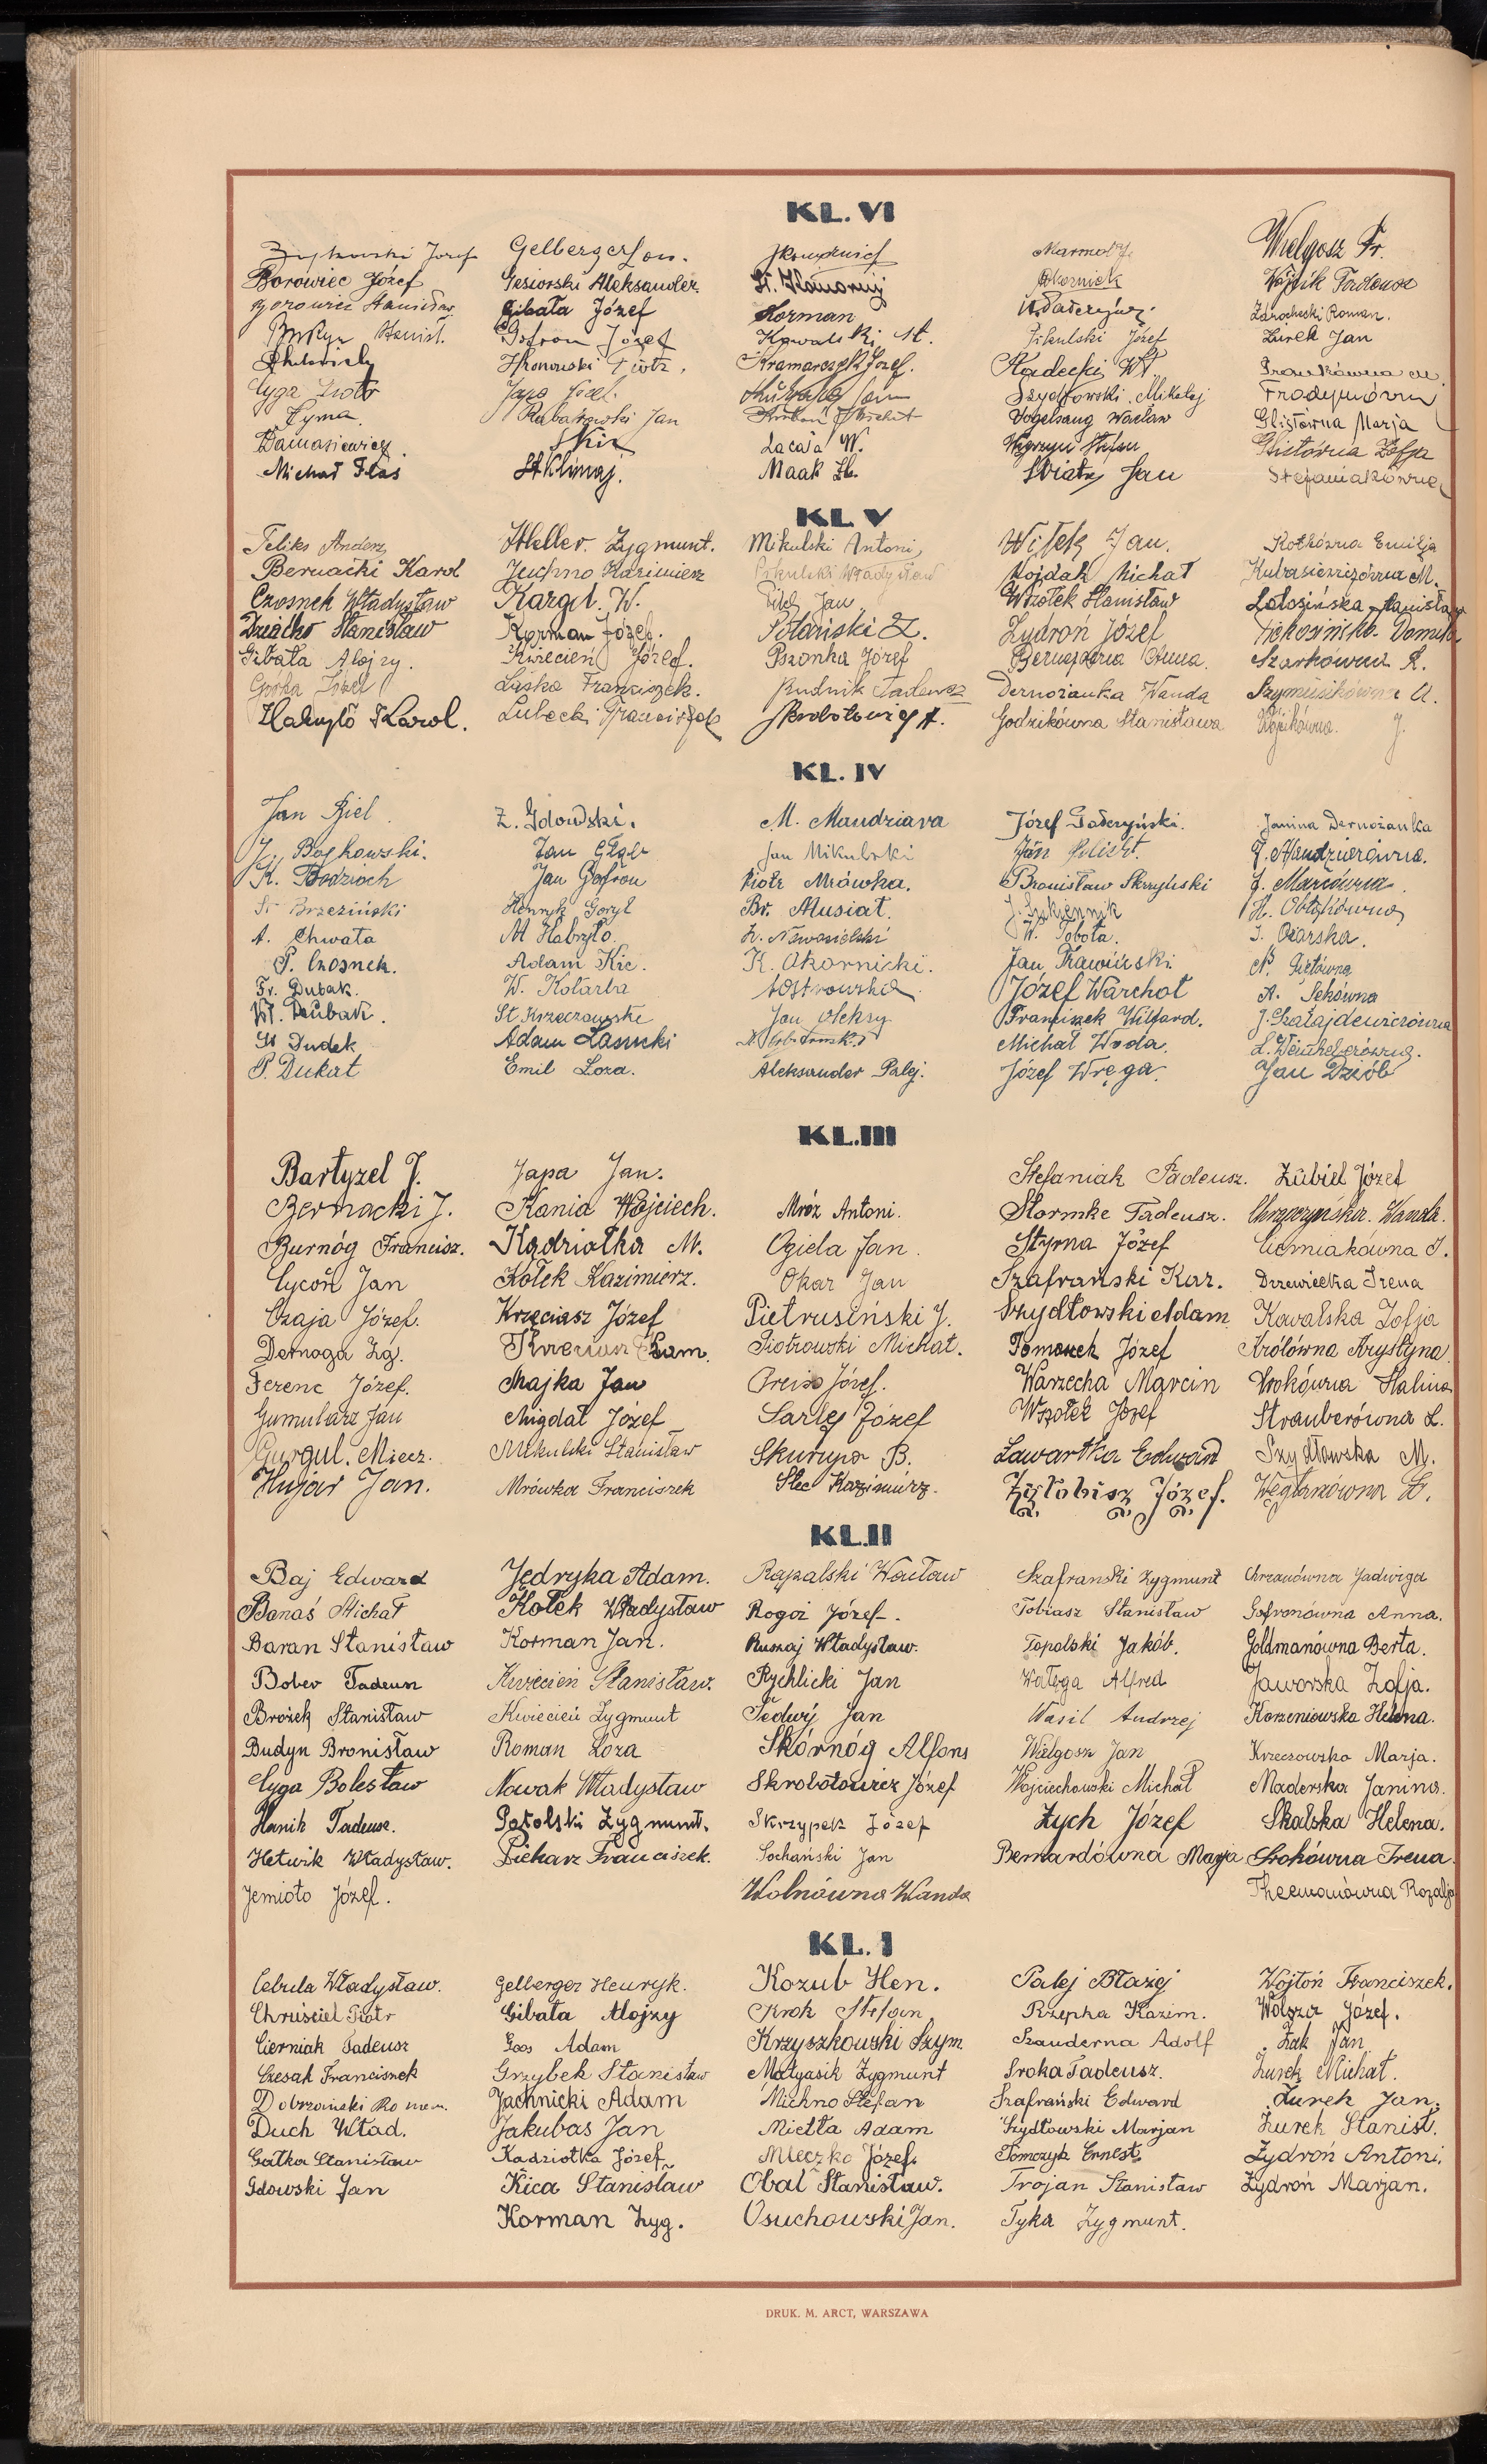 KL. VI
Józef
Borowiec Józef
Stanisław
Stanisł.
Cyga Piotr
Cyma
Damasiewicz
Michał Flas
Gelberger Leon.
Gesiorski Aleksander.
Gibała Józef
Gofron Józef
Hronowski Piotr.
Japa Józef.
Jan
St Klimaj.
Korman
Kowalski St.
Kramarczyk Józef.
Łacaia W.
Maak Zb.
Pikulski Józef
Radecki Wł.
Szydłowski Mikołaj
Vogelsang Wacław
Węgrzyn Stefan
Jan
Wielgosz Fr.
Wójcik Tadeusz
Roman.
Żurek Jan
Glistówna Marja
Glistówna Zofja
Stefaniakówna
KL V
Feliks
Bernacki Karol
Czosnek Władysław
Dziećko Stanisław
Gibała Alojzy.
Górka Józef
Habryło Karol.
Heller. Zygmunt.
Juchno Kazimierz
Kargól. W.
Korman Józef.
Kwiecień Józef.
Laska Franciszek.
Lubecki Franciszek
Mikulski Antoni
Pikulski Władysław
Jan
Polański Z.
Pszonka Józef
Rudnik Tadeusz
Skrobotowicz A.
Witek Jan.
Wojdak Michał
Wszołek Stanisław
Żydroń Józef
Anna.
Dernożanka Wanda
Godzikówna Stanisława
Kotkówna Emilja
M.
Stanisława
Szarkówna R.
Szymusikówna A.
Wójcikówna. J.
KL. IV
Jan Biel.
J. Boćkowski.
K. Bodzioch
St Brzeziński
A. Chwała
P. Czosnek.
Fr. Dubak.
Wł. Dubak.
St Dudek
P. Dukat
Z. Gdowski.
Jan Głąb
Jan Gofron
Henryk Goryl
M Habryło.
Adam Kic.
W. Kolarba
St Krzeczowski
Adam Lasocki
Emil Łoza.
M. Maudziara
Jan Mikulski
Piotr Mrówka.
Br. Musiał.
Z. Nowosielski
K. Okarnicki.
A Ostrowski
Jan Oleksy
Aleksander Palej.
Józef Paderzyński.
Bronisław Skrzyński
J. Szkiennik
W. Tobota.
Jan Trawiński.
Józef Warchoł
Franciszek Wilgard.
Michał Woda.
Józef Wręga.
Janina Dernożanka
J. Maudziarówna.
J. Marcówna.
I. Ożarska.
N. Piętówna
A. Sekówna
J. Szałajdewiczówna
L. Weinbergerówna.
Jan Dziób
KL. III
Bartyzel J.
Bernacki J.
Burnóg Francisz.
Cycoń Jan
Czaja Józef.
Dernoga Zg.
Ferenc Józef.
Gumularz Jan
Gurgul. Miecz.
Hujar Jan.
Japa Jan.
Kania Wojciech.
Kądziołka M.
Kołek Kazimierz.
Krzęciasz Józef
Majka Jan
Migdał Józef
Mikulski Stanisław
Mrówka Franciszek
Mróz Antoni.
Ogiela Jan.
Okar Jan
Pietrusiński J.
Piotrowski Michał.
Preiss Józef.
Sarlej Józef
Skurupa B.
Stec Kazimierz.
Stefaniak Tadeusz.
Stormke Tadeusz.
Styrna Józef
Szafrański Kaz.
Szydłowski Adam
Tomanek Józef
Warzecha Marcin
Wszołek Józef
Zawartka Edward
Zyłobisz Józef.
Zubiel Józef
Chrzczyńska. Wanda.
Cierniakówna I.
Drzewiecka Irena
Kowalska Zofja
Królówna Krystyna
Srokówna Halina
Strauberówna L.
Szydłowska M.
Węglarzówna L.
KL. II
Baj Edward
Banaś Michał
Baran Stanisław
Bober Tadeusz
Brożek Stanisław
Budyn Bronisław
Cyga Bolesław
Hanik Tadeusz.
Hetwik Władysław.
Jemioło Józef.
Jędryka Adam.
Kołek Władysław
Korman Jan.
Kwiecień Stanisław.
Kwiecień Zygmunt
Roman Łoza
Nowak Władysław
Patolski Zygmunt.
Piekarz Franciszek.
Rapalski Wacław
Rogoż Józef.
Ruszaj Władysław.
Rychlicki Jan
Siedwij Jan
Skórnóg Alfons
Skrobotowicz Józef
Skrzypek Józef
Sochański Jan
Wolnówna Wanda
Szafrański Zygmunt
Tobiasz Stanisław
Topolski Jakób.
Wałęga Alfred
Wasil Andrzej
Wielgosz Jan
Wojciechowski Michał
Zych Józef
Bernardówna Marja
Chrzanówna Jadwiga
Gofronówna Anna.
Goldmanówna Berta.
Jaworska Zofja.
Korzeniowska Helena.
Krzeczowska Marja.
Maderska Janina.
Skalska Helena.
Srokówna Irena.
Theemanówna Rozalja
KL. I
Cebula Władysław.
Chruściel Piotr
Cierniak Tadeusz
Czesak Franciszek
Dobrzański Roman.
Duch Wład.
Gałka Stanisław
Gdowski Jan
Gelberger Henryk.
Gibała Alojzy
Goos Adam
Grzybek Stanisław
Jachnicki Adam
Jakubas Jan
Kądziołka Józef
Kica Stanisław
Korman Zyg.
Kozub Hen.
Krok Stefan
Krzyszkowski Szym.
Matyasik Zygmunt
Michno Stefan
Mietła Adam
Mleczko Józef.
Obal Stanisław.
Osuchowski Jan.
Palej Błażej
Rzepka Kazim.
Szauderna Adolf
Sroka Tadeusz.
Szafrański Edward
Szydłowski Marjan
Tomczyk Ernest
Trojan Stanisław
Tyka Zygmunt.
Wojtoń Franciszek.
Wolsza Józef.
Żak Jan
Żurek Michał.
Żurek Jan.
Żurek Stanisł.
Żydroń Antoni.
Żydroń Marjan.
DRUK. M. ARCT, WARSZAWA